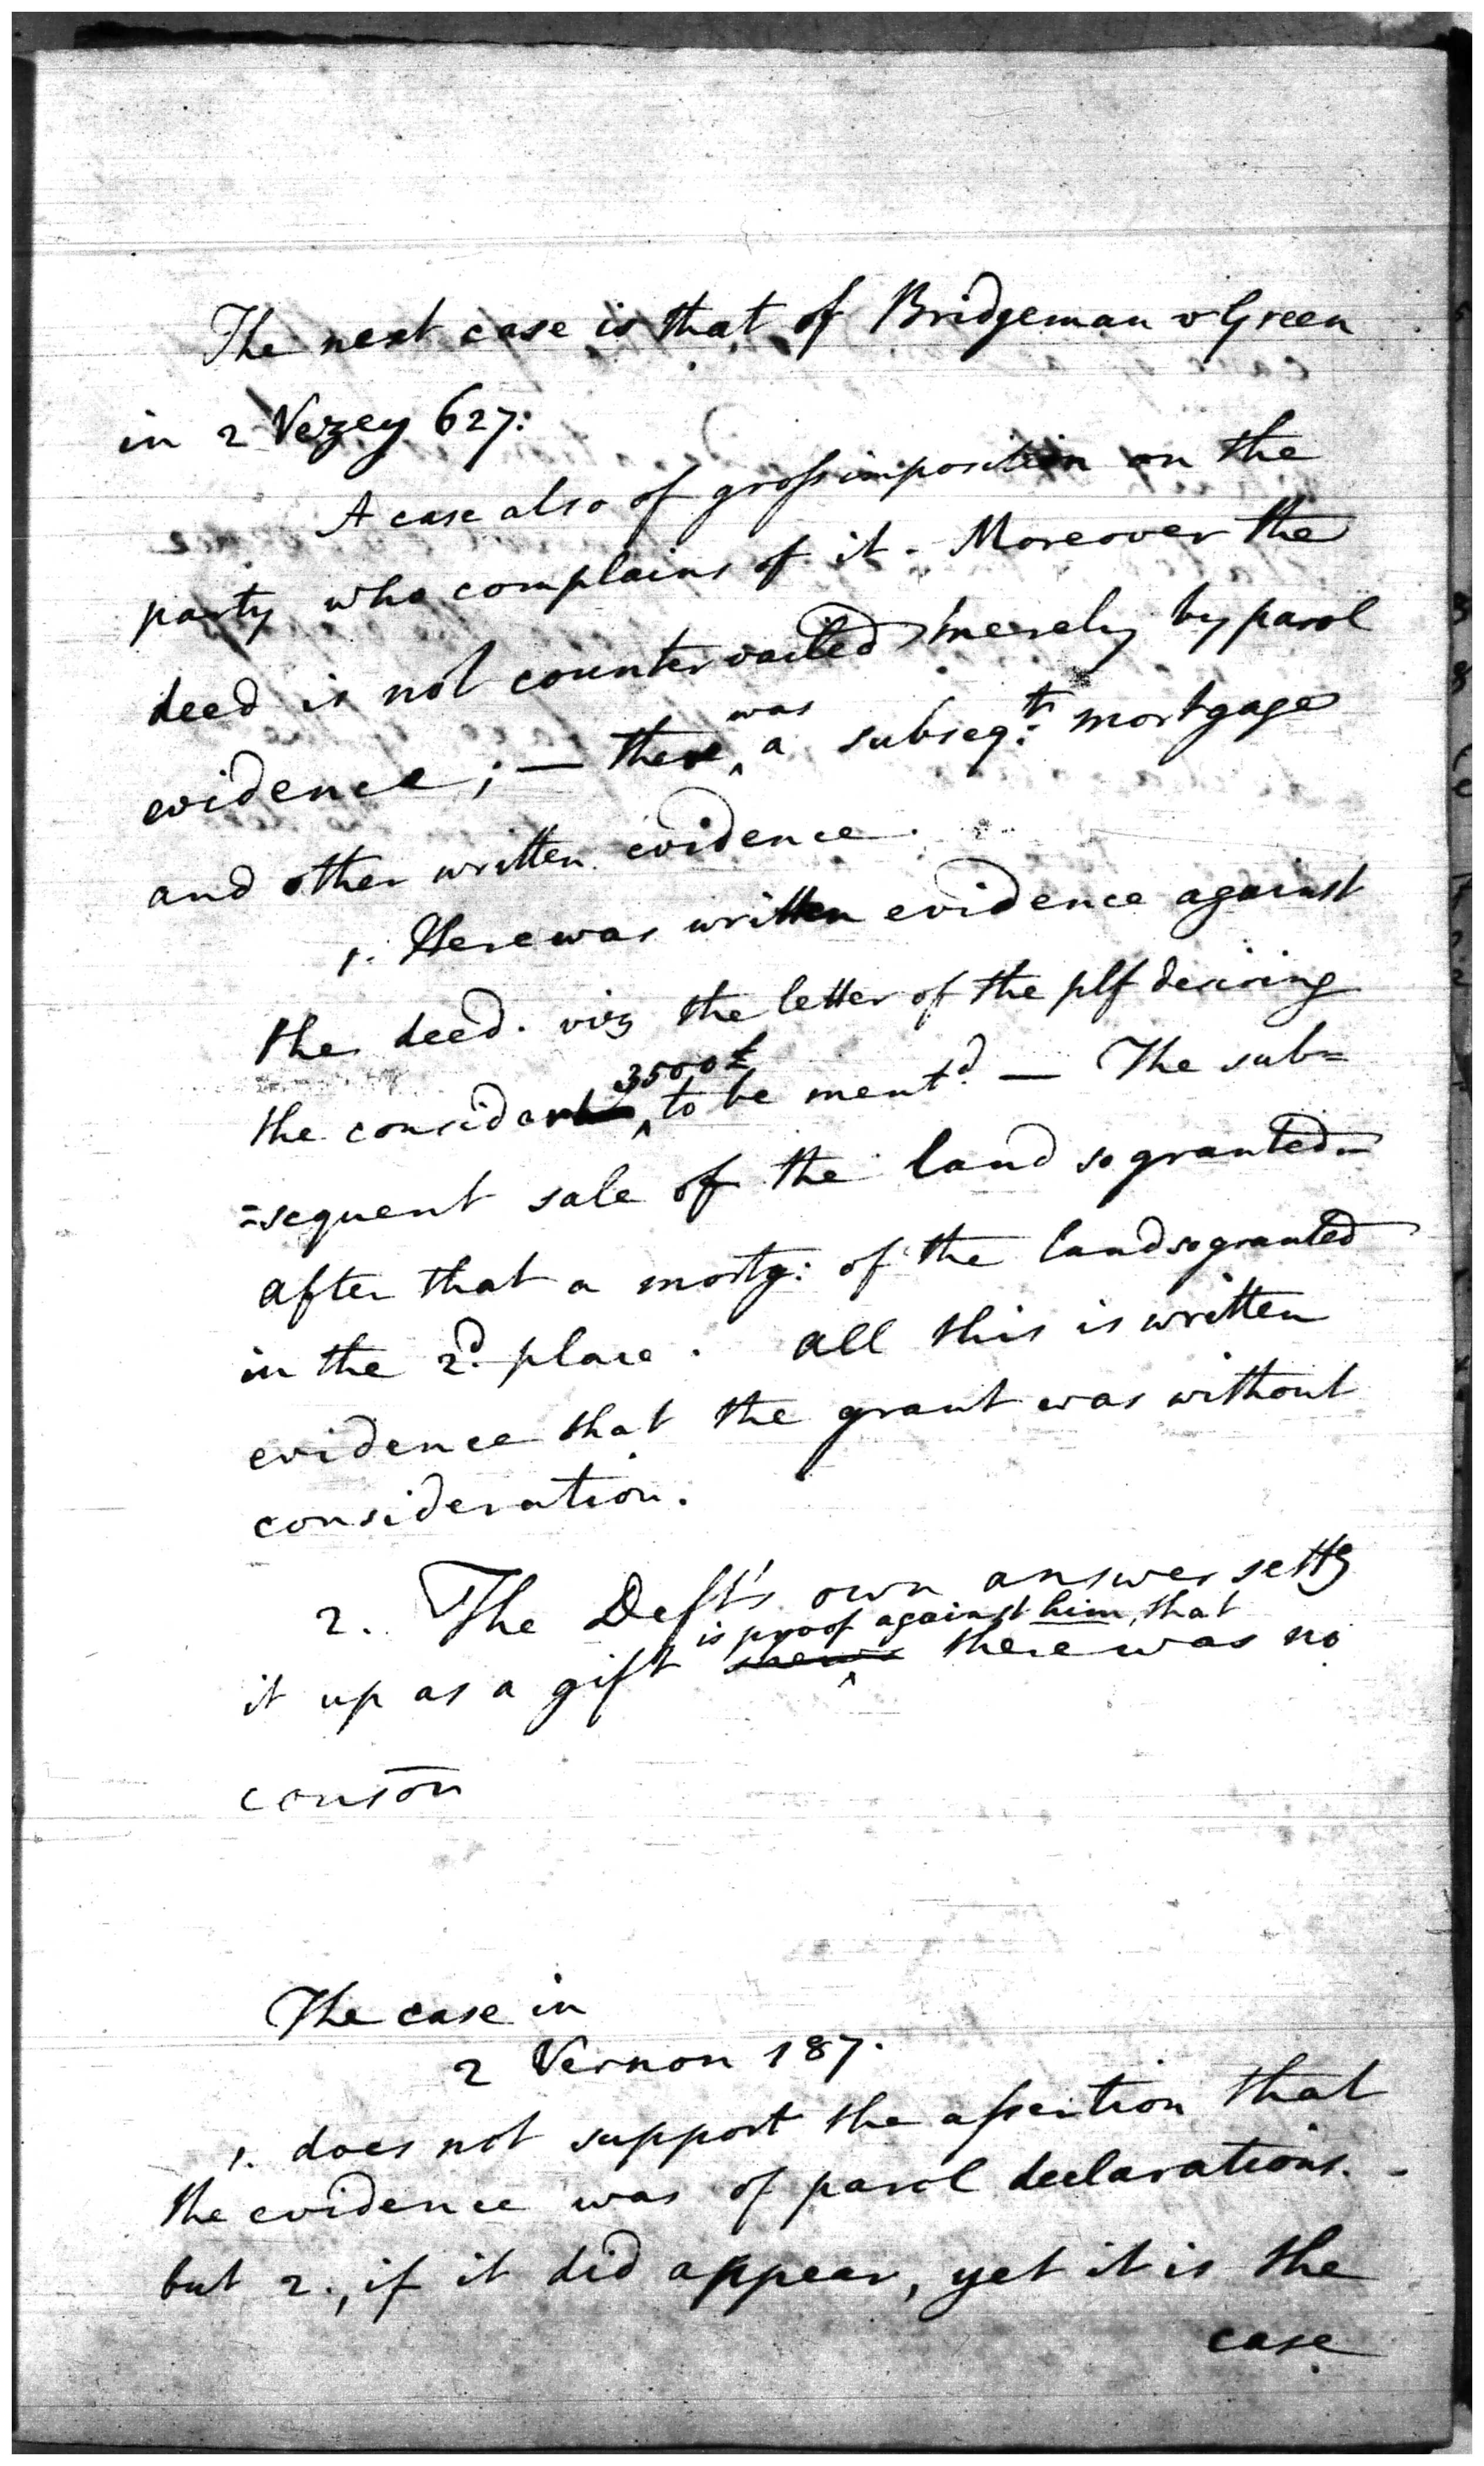 The next case is that of Bridgeman v Green
in 2 Vezey 627:
A case also of gross imposition on the
party who complains of it. Moreover the
deed is not countervailed merely by parol
evidence; — there was a subseqt: mortgage
and other written evidence.
1. Here was written evidence against
the deed. viz the letter of the plf desiring
the considon 3500£ to be mentd. — The sub=
=sequent sale of the land so granted —
after that a mortg: of the land so granted
in the 2d. place. all this is written
evidence that the grant was without
consideration.
2. The Deft's own answer settg
it up as a gift shews is proof against him, that there was no
conson
The case in
2 Vernon 187.
1. does not support the assertion that
the evidence was of parol declarations. -
but 2., if it did appear, yet it is the
case